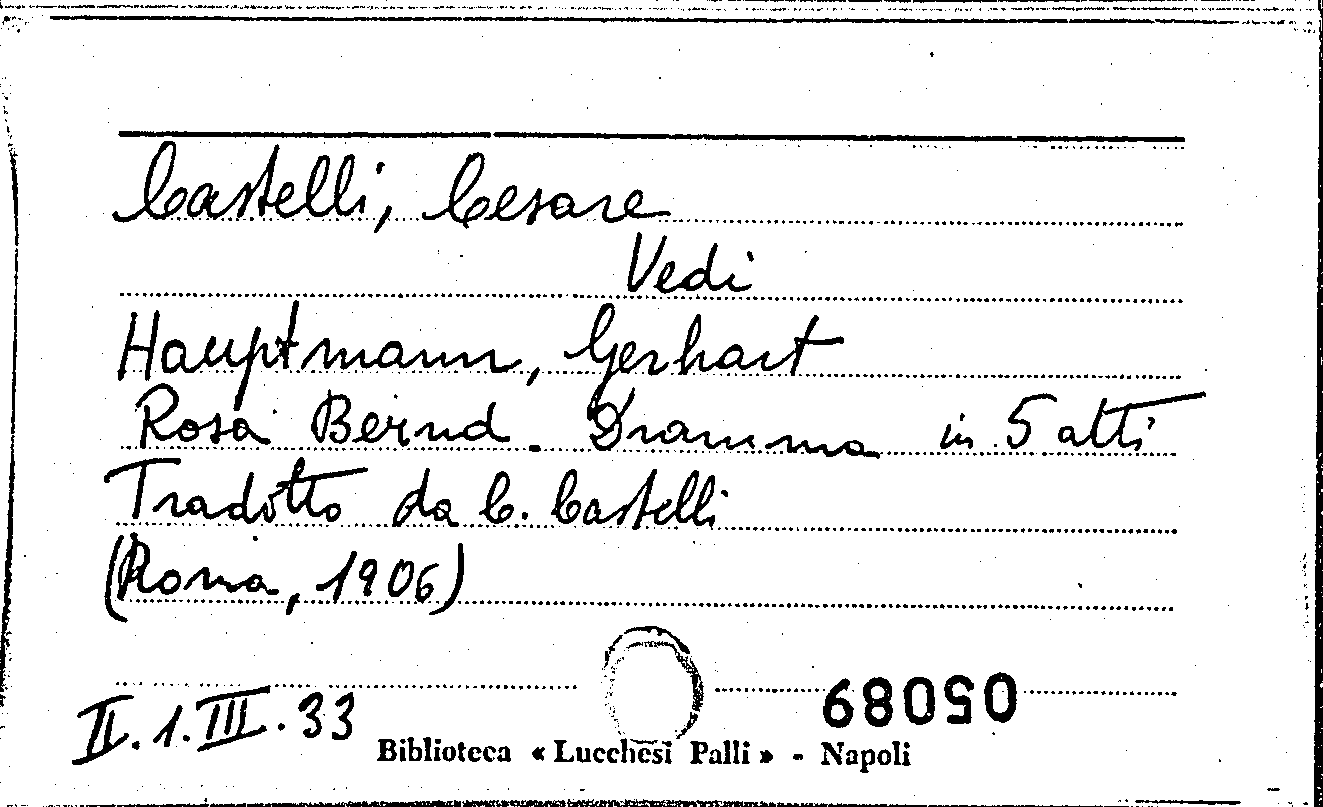 Castelli, Cesare
Vedi
Hauptmann, Gerhart
Rosa Bernd. Dramma in 5 atti
Tradotto da C. Castelli
(Roma, 1906)
05089
II.1.III.33
Biblioteca « Lucchesi Palli » - Napoli